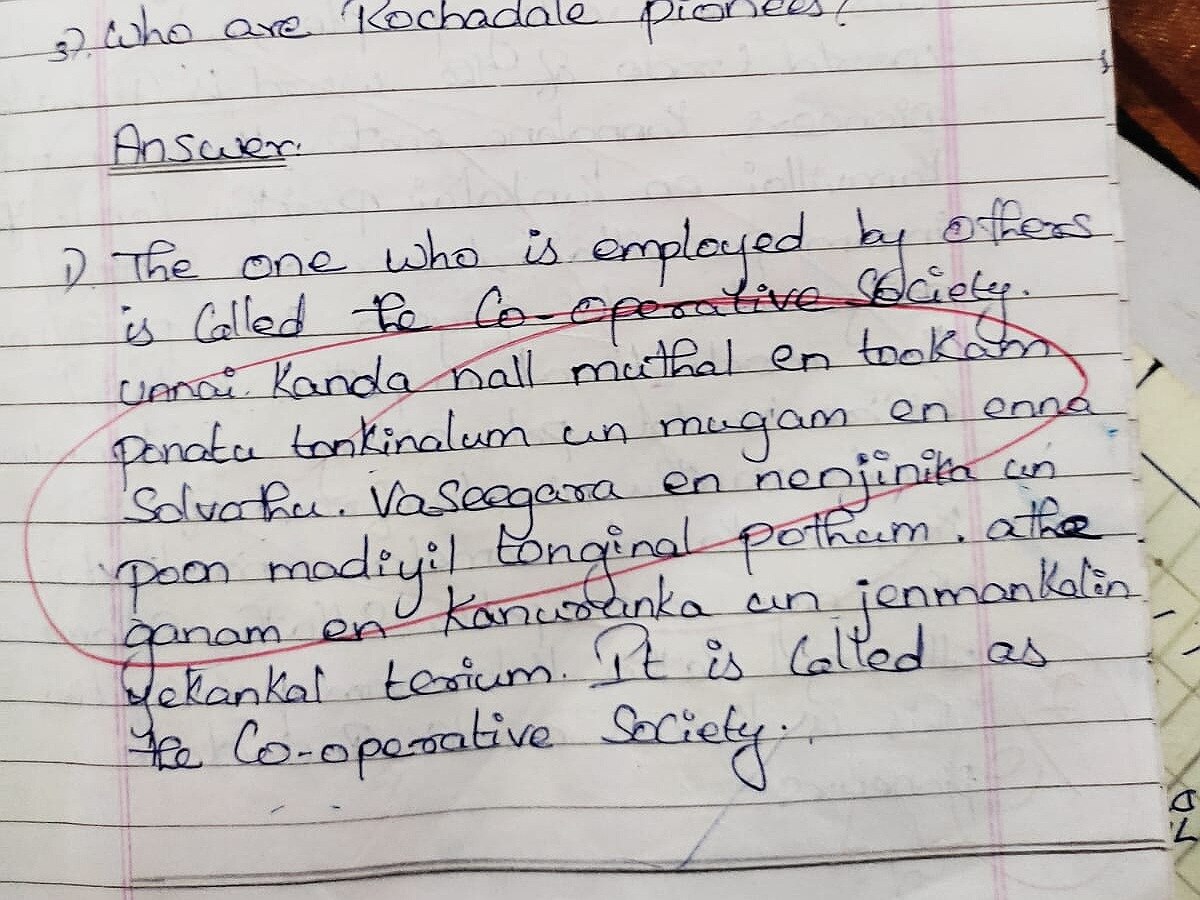 3). Who are Rochadale pionees?
Answer.
1) The one who is employed by others
is Called the Co-operative Society.
unnai. Kanda nall muthal en tookam
ponatu tonkinalum un mugam en enna
Solvathu. Vaseegara en nenjinika un
poon madiyil tonginal pothum. athe
ganam en kanuranka un jenmankalin
yekankal terium. It is Called as
the Co-operative Society.